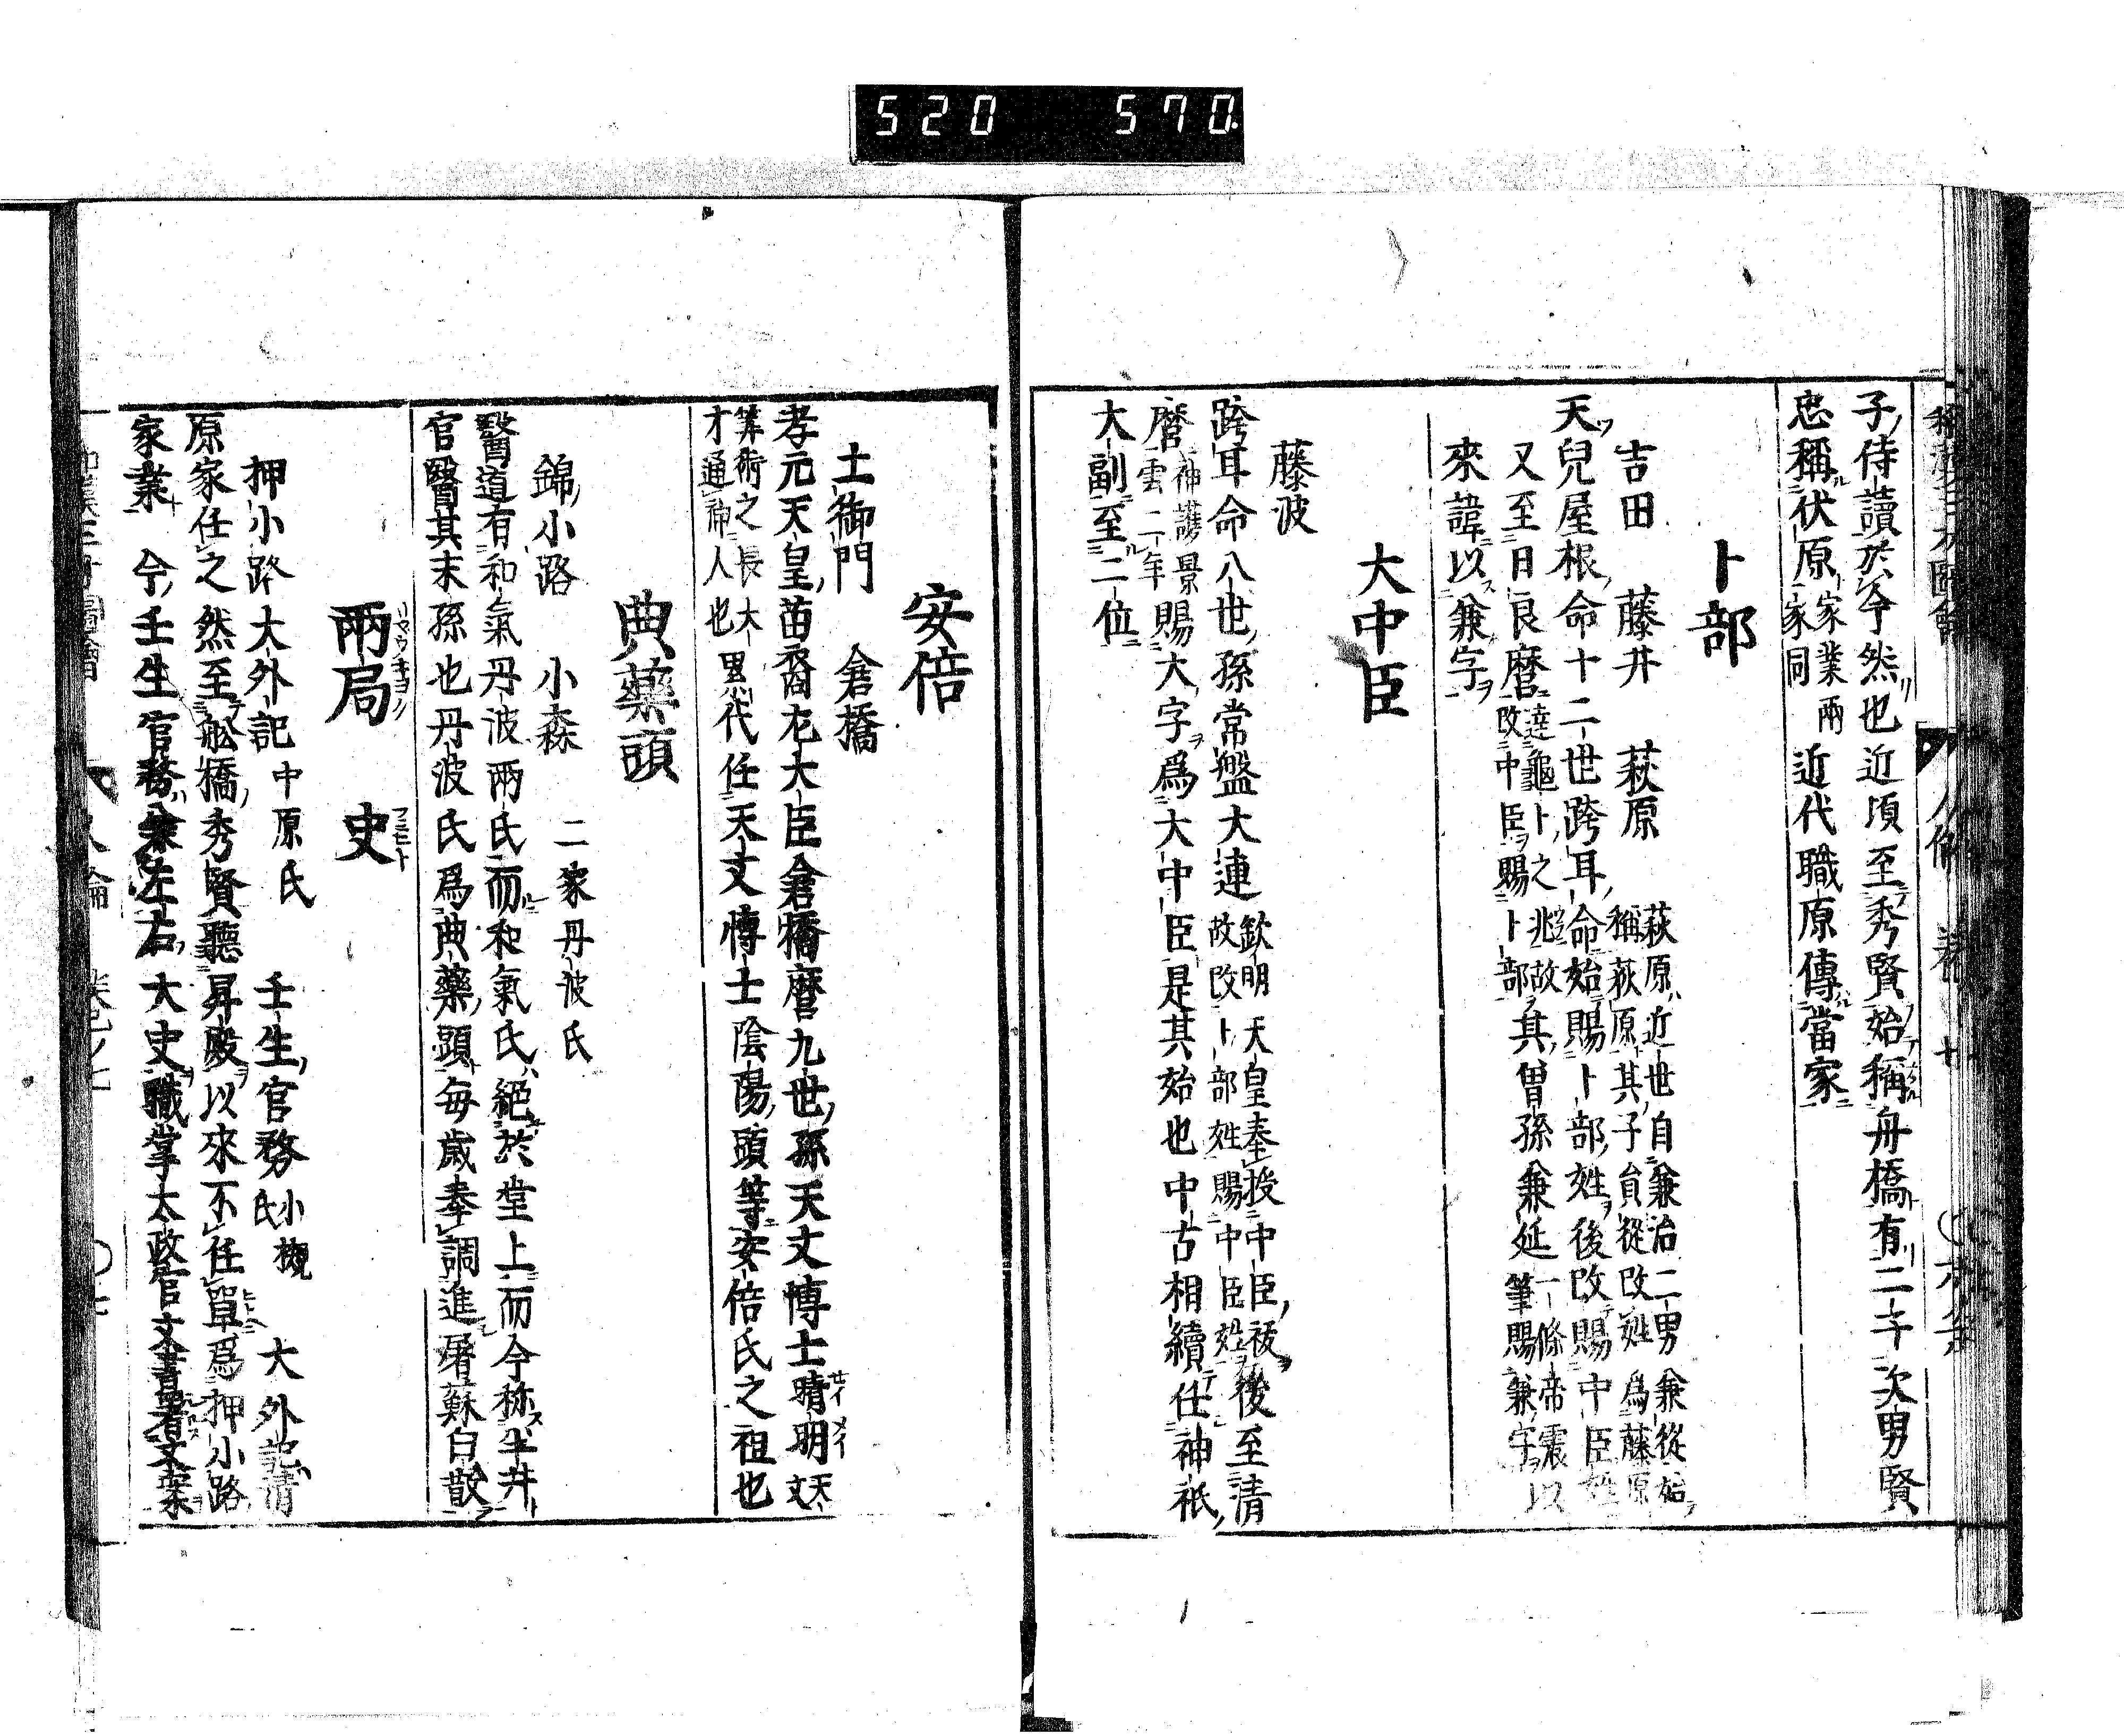 520 570.
子侍讀於今然也近頃至秀賢始稱舟橋有二子次男賢
忠稱伏原家業兩家同近代職原傳當家
卜部
吉田 藤井 萩原 萩原近世自兼治二男兼從始稱萩原其子員從改姓爲藤原
天兒屋根命十二世跨耳命始賜卜部姓後改賜中臣姓
又至日良麿達龜卜之兆故改中臣賜卜部其曾孫兼延一條帝震筆賜兼字以
來諱以兼字
大中臣
藤波
跨耳命八世孫常盤大連欽明天皇奉授中臣祓故改卜部姓賜中臣姓後至清
麿神護景雲二年賜大字爲大中臣是其始也中古相續任神祇
大副至二位
安倍
土御門 倉橋
孝元天皇苗裔左大臣倉橋麿九世孫天文博士晴明天文
筭術之長大才通神人也累代任天文博士陰陽頭等安倍氏之祖也
典藥頭
錦小路 小森 二家丹波氏
醫道有和氣丹波兩氏而和氣氏絕於堂上而今称半井
官醫其末孫也丹波氏爲典藥頭毎歳奉調進屠蘇白散
兩局 史
押小路大外記中原氏 壬生官務小槻氏 大外記清
原家任之然至舩橋秀賢聽昇殿以來不任單爲押小路
家業 今壬生官務兼左右大史職掌太政官文書署文案